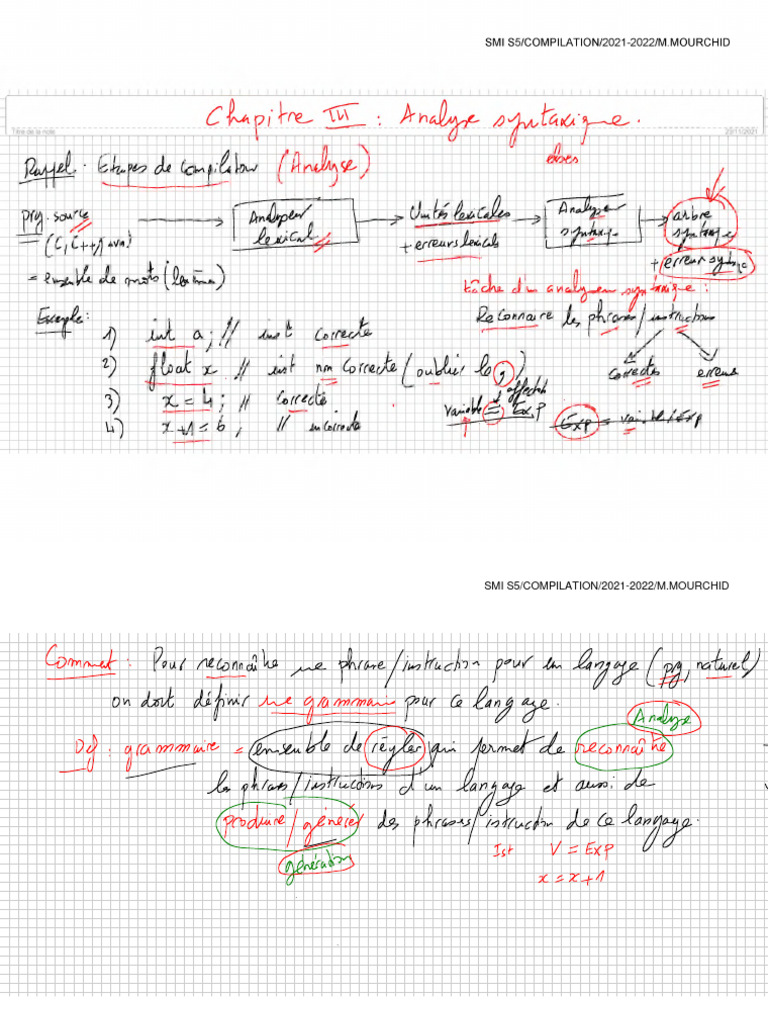 SMI S5/COMPILATION/2021-2022/M.MOURCHID
Chapitre III : Analyse syntaxique.
Titre de la note
23/11/2021
Rappel : Etapes de compilation (Analyse)
prg. source
(C, C++, Java)
= ensemble de mots (lexèmes)
Analyseur
lexical
Unités lexicales
+ erreurs lexicales
Analyse
syntaxiq
arbre
syntaxiq
+ erreur syntaxiq
tâche d'un analyseur syntaxique :
Reconnaitre les phrases/instructions
correctes
erreurs
Exemple :
1) int a; // inst correcte
2) float x // inst non correcte (oublier le ;)
3) x = 4; // correcte
4) x+1 = 6; // incorrecte
affectat
variable = Exp
Exp = variable/Exp
SMI S5/COMPILATION/2021-2022/M.MOURCHID
Comment : Pour reconnaître une phrase/instruction pour un langage (prg, naturel)
on doit définir une grammaire pour ce langage.
Analyse
Def : grammaire = ensemble de règles qui permet de reconnaître
les phrases/instructions d'un langage et aussi de
produire/générer des phrases/instruction de ce langage.
génération
Ist V = Exp
x = x+1